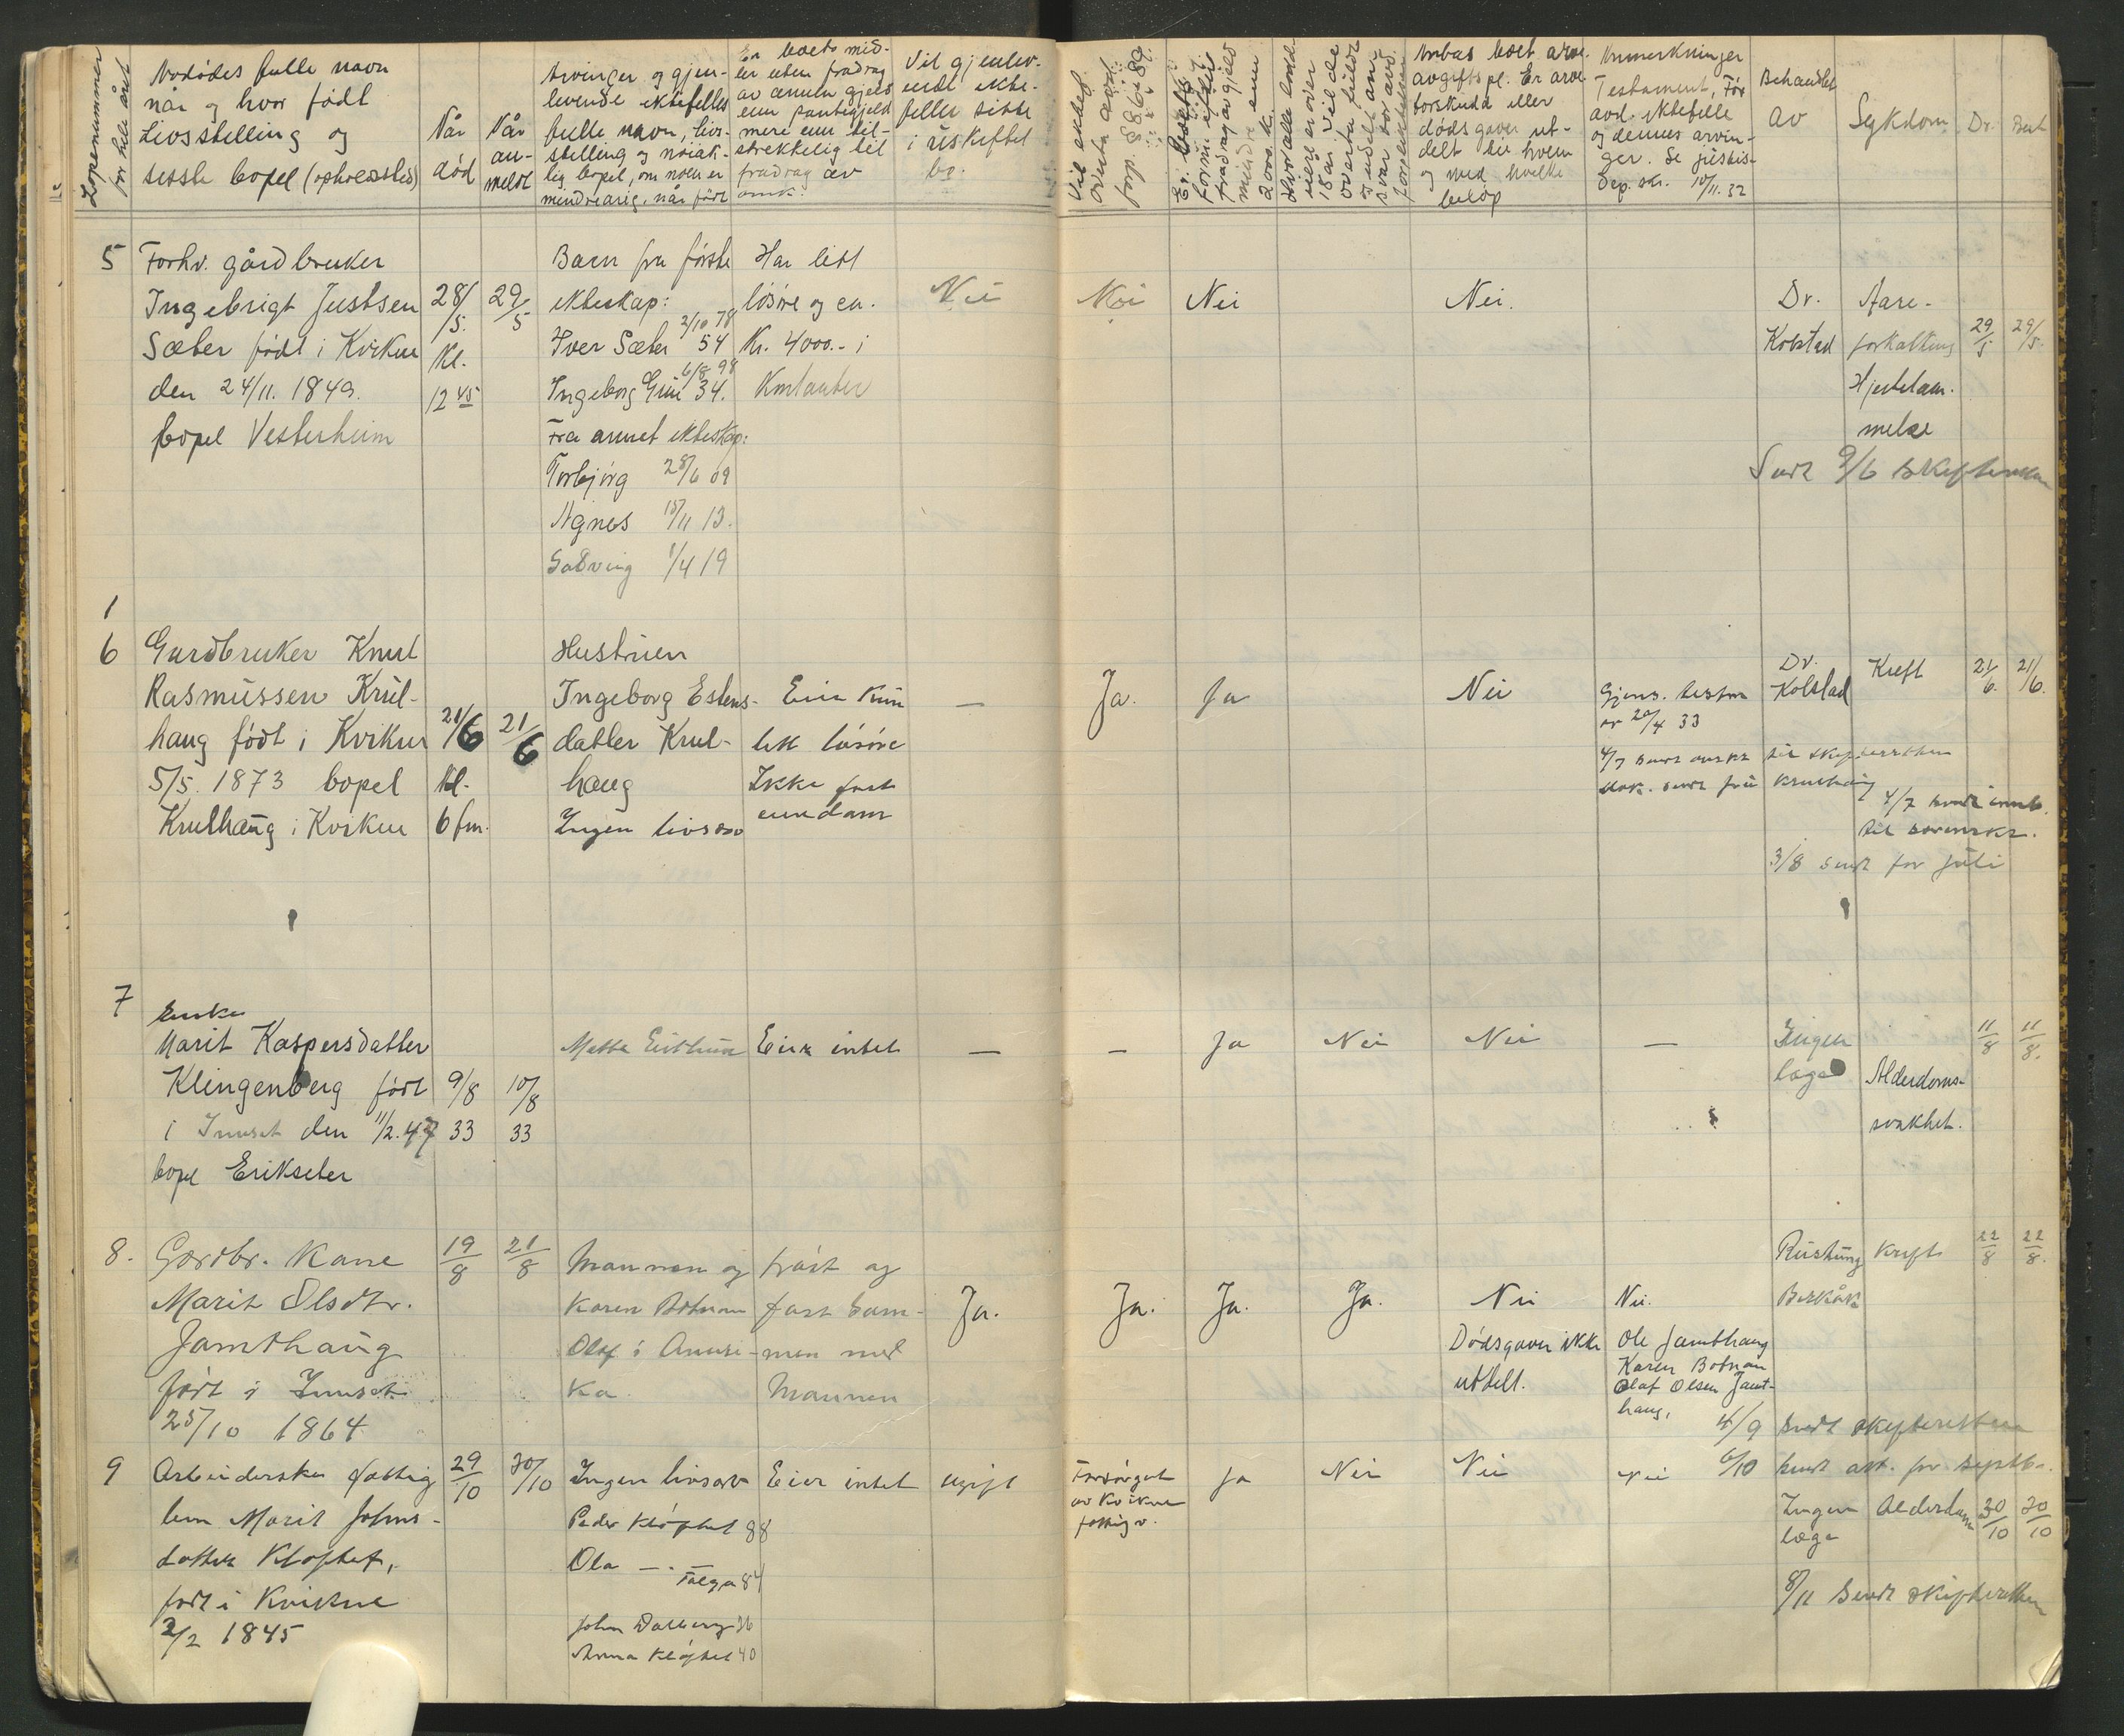 Løpenummer
for hele året
Avdødes fulle navn
når og hvor født
Livsstilling og
siste bopel (opholdssted)
Når
død
Når
an-
meldt
Arvinger og gjen-
levende ektefelles
fulle navn, livs-
stilling og nøiak-
tig bopel, om noen er
mindreårig, når født
Er boets mid-
ler uten fradrag
av annen gjeld
enn pantegjeld
mere enn til-
strekkelig til
fradrag av
omk.
Vil gjenlev-
ende ekte-
felle sitte
i uskiftet
bo.
Vil ektef.
overta
forp.
2000 k.
18 år. Vil de
overta fulde
Antas boet arve-
avgiftspl. Er arve-
forskudd eller
dødsgaver ut-
delt til hvem
og med hvilke
beløp
Anmerkninger
Testament, Før
avd. ektefelle
og dennes arvin-
ger. Se justis-
dep. skr. 10/11. 32
Behandlet
av
Sykdom
Dr.
5
Forhv. gårdbruker
Ingebrigt Justsen
Sæter født i Kvikne
den 24/11. 1849.
bopel Vesterheim
28/5.
Kl.
12 45
29/5
Barn fra første
ekteskap:
2/10 78
Iver Sæter 54
6/8 98
Ingeborg 34.
Fra annet ekteskap:
Torbjørg 28/6 09
Agnes 15/11 13.
1/4 19
Har litt
løsøre og ca.
Kr. 4000.- i
Kontanter
Nei
Nei
Nei
Nei.
Dr.
Kolstad
Aare-
forkalkning
Hjertelam-
melse
29/5
29/5.
Sendt 9/6 skifteretten
1
6
Gardbruker Knut
Rasmussen Krul-
haug født i Kvikne
5/5. 1873 bopel
Krulhaug i Kvikne
21/6
Kl.
6 fm.
21/6
Hustruen
Ingeborg Estens-
datter Krul-
haug
Ingen livsarv
Eier kun
litt løsøre
Ikke fast
eiendom
—
Ja.
Ja
Nei
Gjens. testm
av 20/4 33
Dr.
Kolstad
Kreft
21/6.
21/6.
4/7 sendt til skifteretten
sendt fru Krulhaug
4/7 sendt
til sorenskr.
3/8 sendt for juli
7
Enke
Marit Kaspersdatter
Klingenberg født
i Innset den 11/2. 47
bopel Erikseter
9/8
33
10/8
33
Eier intet
—
—
Ja
Nei
Nei
—
Ingen
læge
Alderdoms-
svakhet.
11/8
11/8.
8.
Gardbr. Kone
Marit Olsdtr.
Jamthaug
født i Innset
25/10 1864
19/8
21/8
Mannen og
Karen Botnan
Olaf i Ameri-
ka
fast og
fast sam-
men med
Mannen
Ja.
Ja.
Ja.
Ja.
Nei
Dødsgaver ikke
utdelt.
Nei.
Ole Jamthaug
Karen Botnan
Olaf Olsen Jamt-
haug,
Rustung
Berkåk
Kreft
22/8
22/8.
4/9 sendt skifteretten
6/10 sendt att. for septb.
9
Arbeiderske fattig
lem Marit Johns-
datter Kløftet,
født i Kvikne
2/2 1845
29/10
30/10
Ingen livsarv
Peder Kløftet 88
Ola —. Tolga 84
John Dalberg 36
Anna Kløftet 40
Eier intet
ugift
Forsørget
av Kvikne
fattigv.
Ja
Nei
Nei
Nei
Ingen
læge
Alderdom
30/10
30/10
8/11 Sendt skifteretten